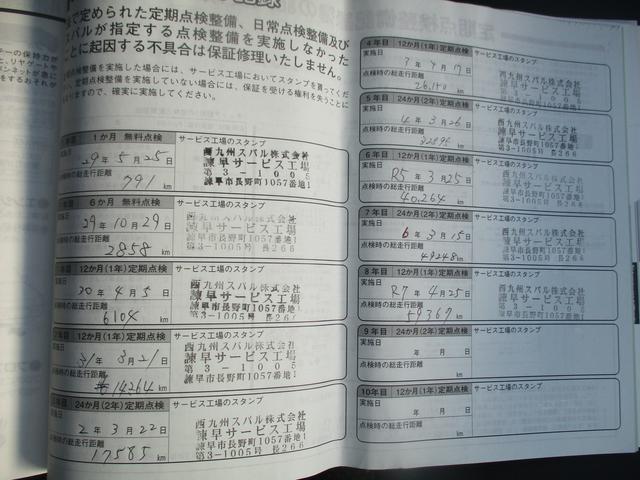 で定められた定期点検整備、日常点検整備及び
スバルが指定する点検整備を実施しなかった
ことに起因する不具合は保証修理いたしません。
点検整備を実施した場合には、サービス工場においてスタンプを貰ってくだ
定期点検整備を実施していない場合には、保証を受ける権利を失うことに
ますので、確実に実施してください。
1か月 無料点検
サービス工場のスタンプ
実施日
29年 5月 25日
点検時の総走行距離
791 km
西九州スバル株式会社
諫早サービス工場
第3-1005
諫早市長野町1057番地1
6か月 無料点検
サービス工場のスタンプ
29年 10月 29日
点検時の総走行距離
2858 km
西九州スバル株式会社
諫早サービス工場
諫早市長野町1057番地1
第3-1005号 長266
12か月(1年)定期点検
サービス工場のスタンプ
30年 4月 5日
時の総走行距離
6104 km
西九州スバル株式会社
諫早サービス工場
諫早市長野町1057番地1
第3-1005号 長266
12か月(1年)定期点検
サービス工場のスタンプ
実施日
31年 3月 21日
点検時の総走行距離
14264 km
西九州スバル株式会社
諫早サービス工場
第3-1005
諫早市長野町1057番地1
24か月(2年)定期点検
サービス工場のスタンプ
実施日
2年 3月 22日
点検時の総走行距離
17585 km
西九州スバル株式会社
諫早サービス工場
諫早市長野町1057番地1
第3-1005号 長266
4年目 12か月(1年)定期点検
サービス工場のスタンプ
実施日
3年 4月 17日
点検時の総走行距離
26,140 km
西九州スバル株式会社
諫早サービス工場
諫早市長野町1057番地1
第3-1005号 長266
5年目 24か月(2年)定期点検
サービス工場のスタンプ
実施日
4年 3月 26日
点検時の総走行距離
km
西九州スバル株式会社
諫早サービス工場
諫早市長野町1057番地1
第3-1005号 長266
6年目 12か月(1年)定期点検
サービス工場のスタンプ
実施日
R5年 3月 25日
点検時の総走行距離
40,264 km
西九州スバル株式会社
諫早サービス工場
諫早市長野町1057番地1
第3-1005号 長266
7年目 24か月(2年)定期点検
サービス工場のスタンプ
実施日
6年 3月 15日
点検時の総走行距離
49248 km
西九州スバル株式会社
諫早サービス工場
諫早市長野町1057番地1
第3-1005号 長266
8年目 12か月(1年)定期点検
サービス工場のスタンプ
実施日
R7年 4月 25日
点検時の総走行距離
59369 km
西九州スバル株式会社
諫早サービス工場
諫早市長野町1057番地1
第3-1005号 長266
9年目 24か月(2年)定期点検
サービス工場のスタンプ
実施日
年 月 日
点検時の総走行距離
km
10年目 12か月(1年)定期点検
サービス工場のスタンプ
実施日
年 月 日
点検時の総走行距離
km